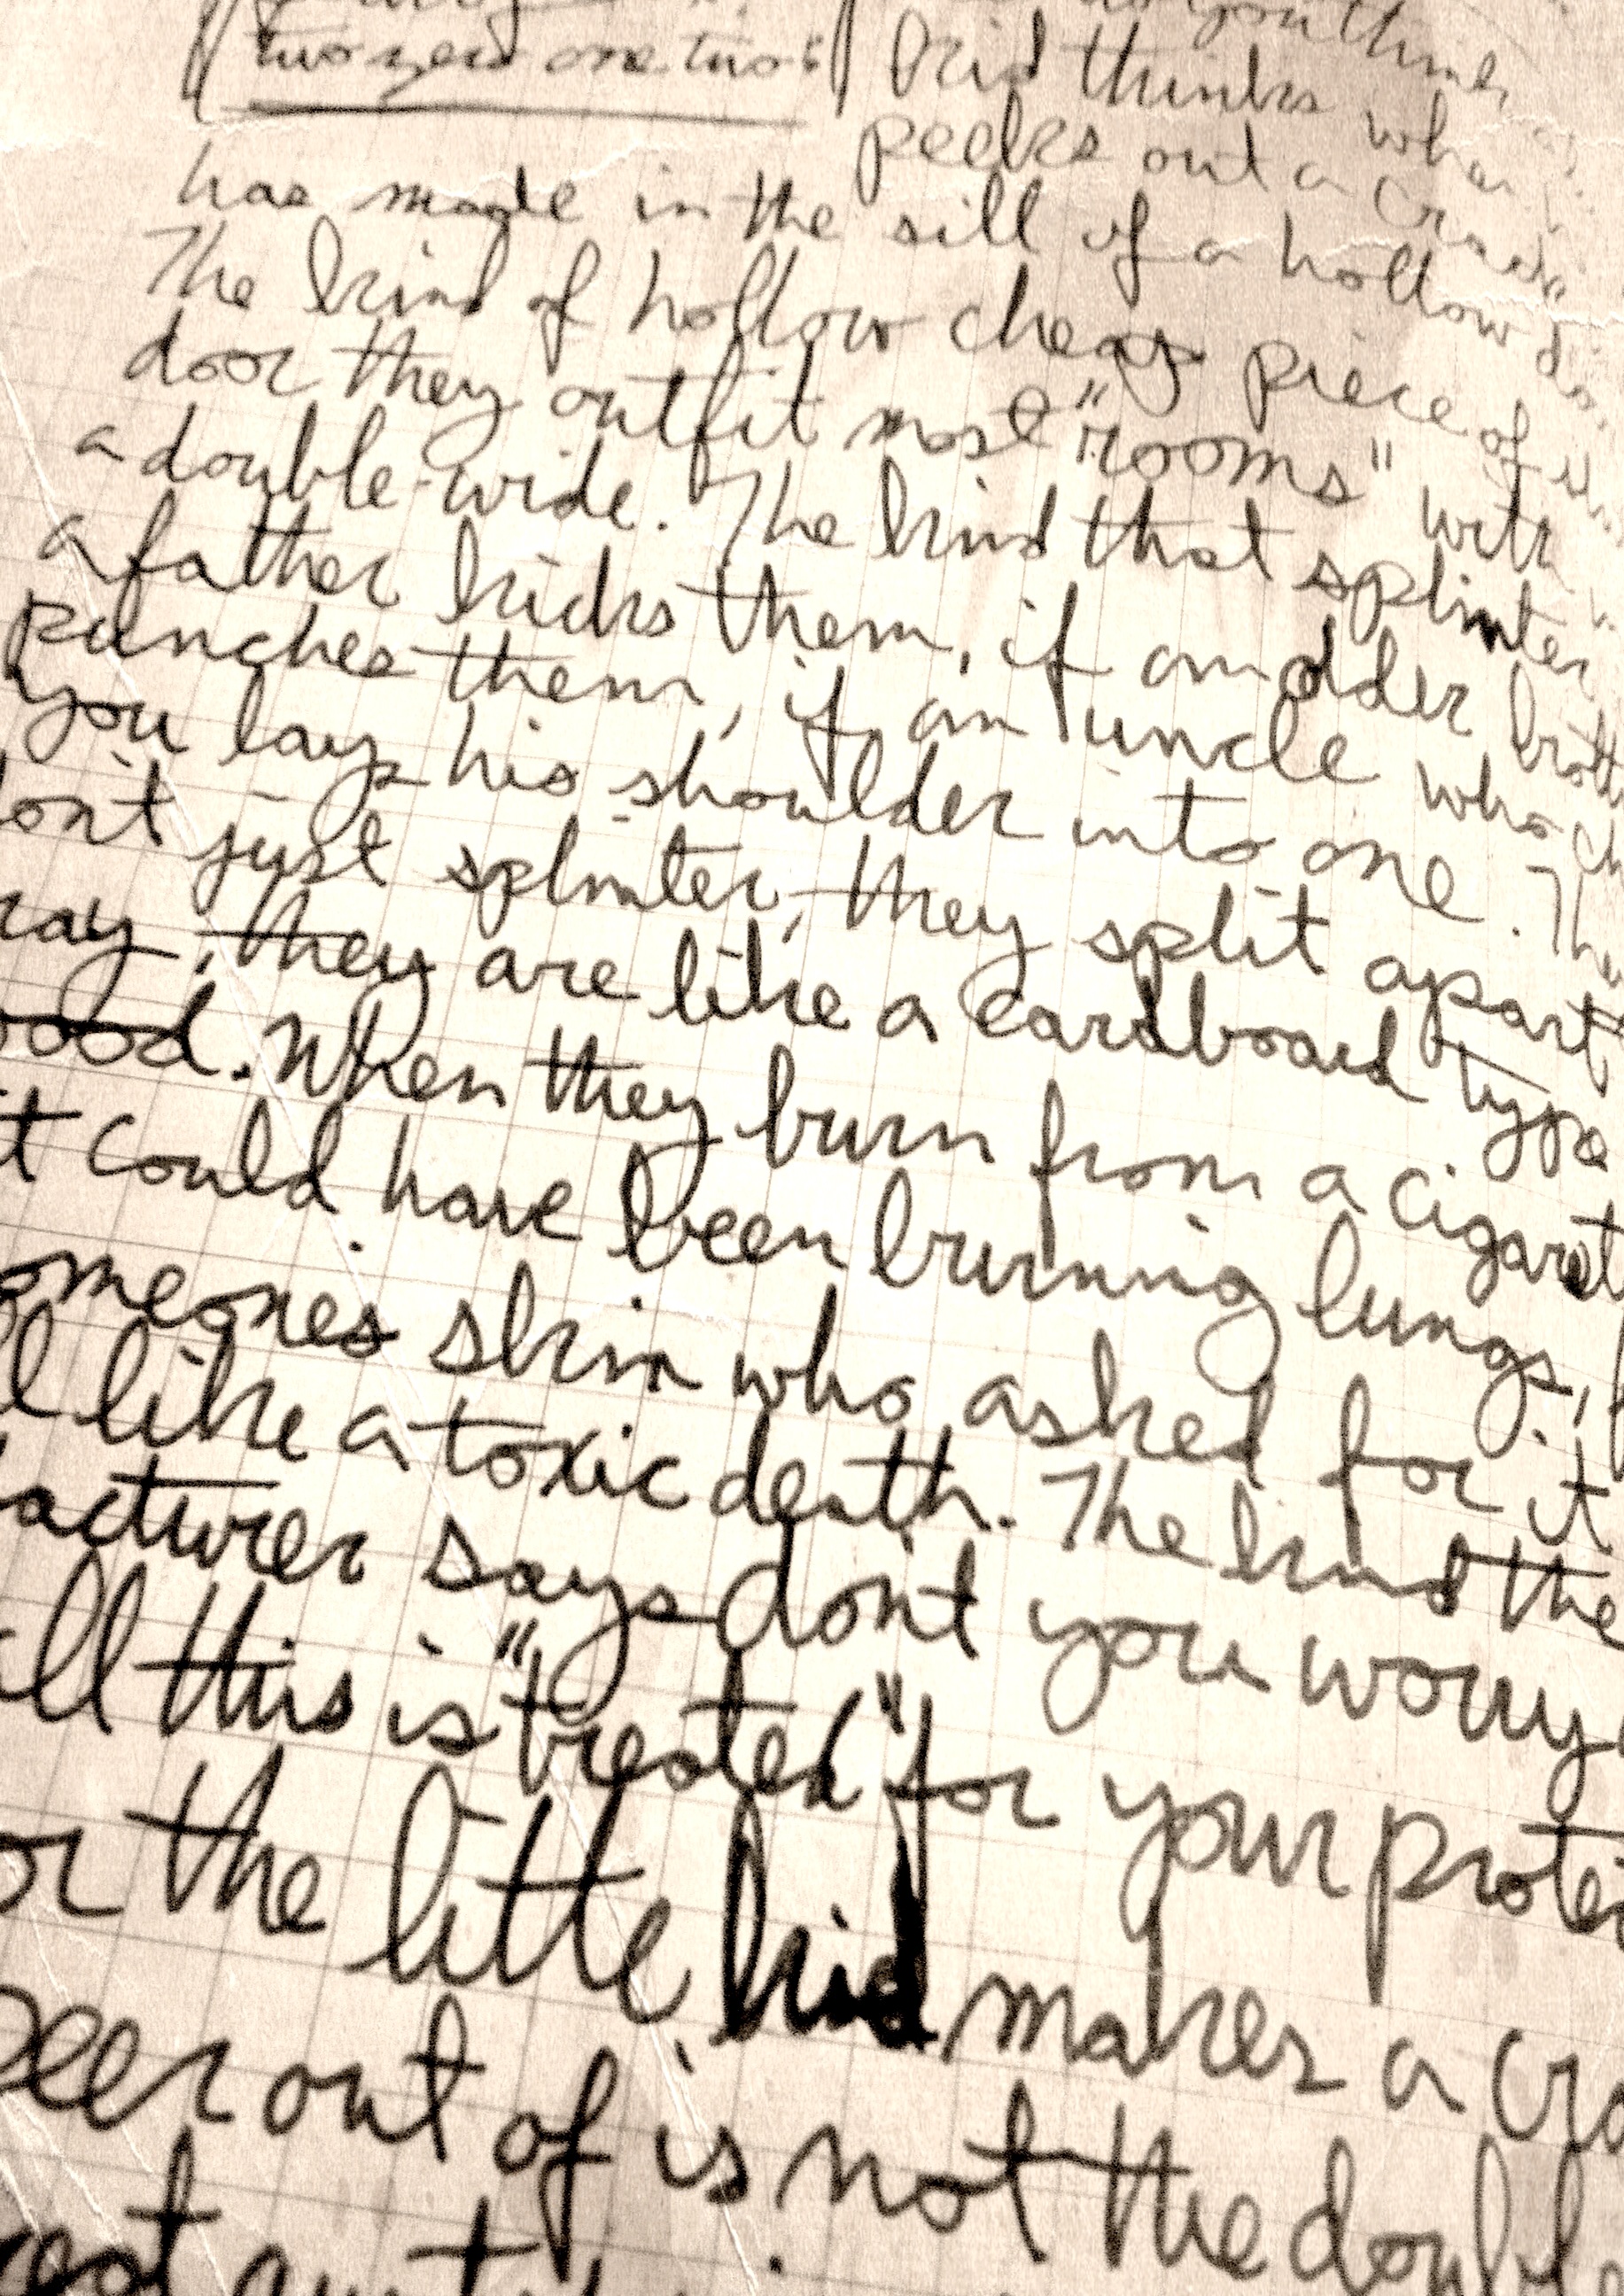 two zero one two"
you think,
kid thinks when
peeks out a crack
has made in the sill of a hollow
The kind of hollow cheap piece of
door they outfit most "rooms" with
a double-wide. The kind that splinter
a father kicks them, if an older broth
punches them, if an uncle who
you lays his shoulder into one. The
dont just splinter, they split apart
ray, they are like a cardboard type
wood. When they burn from a cigaret
it could have been burning lungs,
omeones skin who asked for it
l like a toxic death. The kind the
acturer says dont you worry
all this is "treated" for your prote
or the little kid makes a cra
peer out of is not the doubl